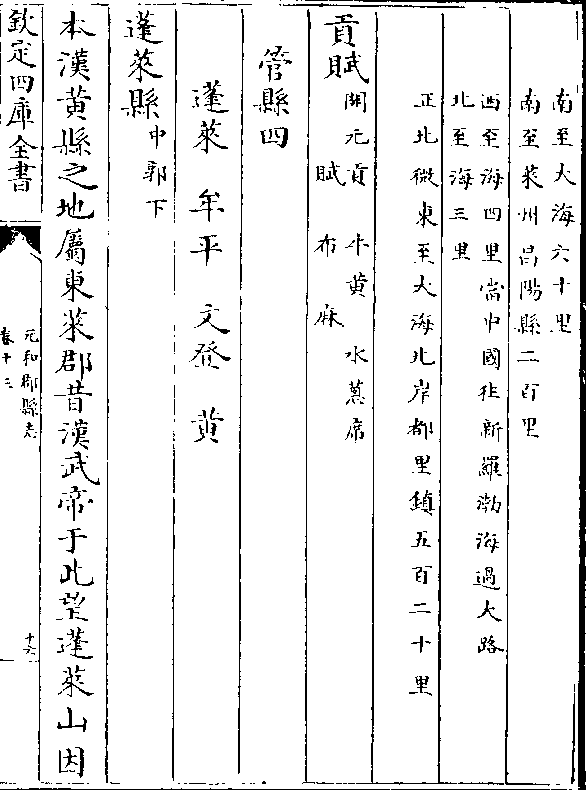 南至大海六十里
南至萊州昌陽縣二百里
西至海四里當中國往新羅渤海過大路
北至海三里
正北微東至大海北岸都里鎮五百二十里
貢賦
開元貢 牛黄 水葱席
賦 布麻
管縣四
蓬萊 牟平 文登 黄
蓬萊縣
中郭下
本漢黄縣之地屬東萊郡昔漢武帝于此望蓬萊山因
欽定四庫全書
元和郡縣志
卷十三
十六